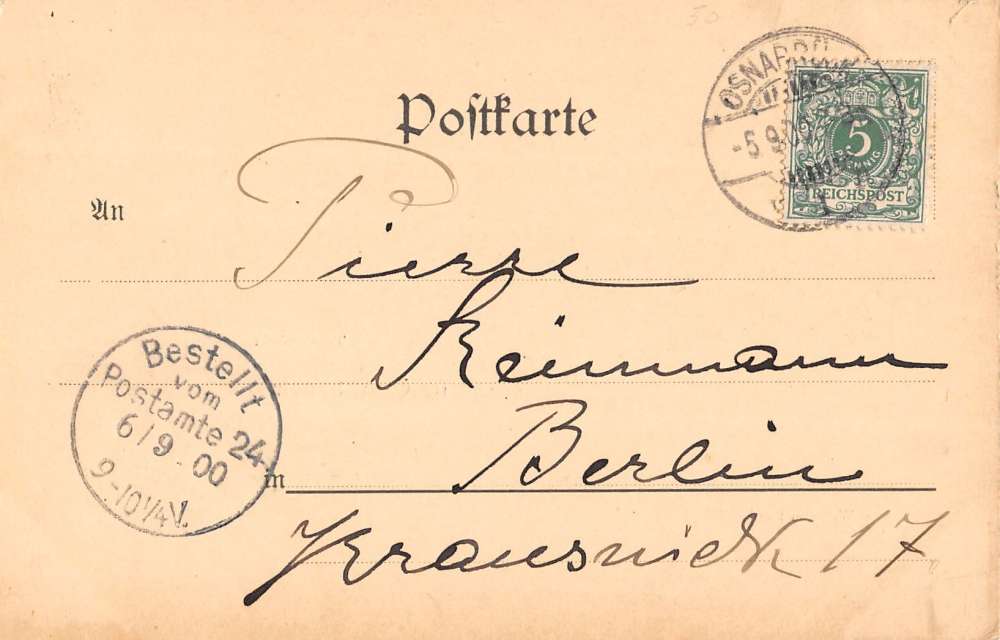 50
Postkarte
OSNABRÜ
-5.9.00
5
PFENNIG
REICHSPOST
An
Pierre
Reinmann
Bestellt
vom
Postamte 24
6/9.00
9-10¼V.
in Berlin
Krausnick 17